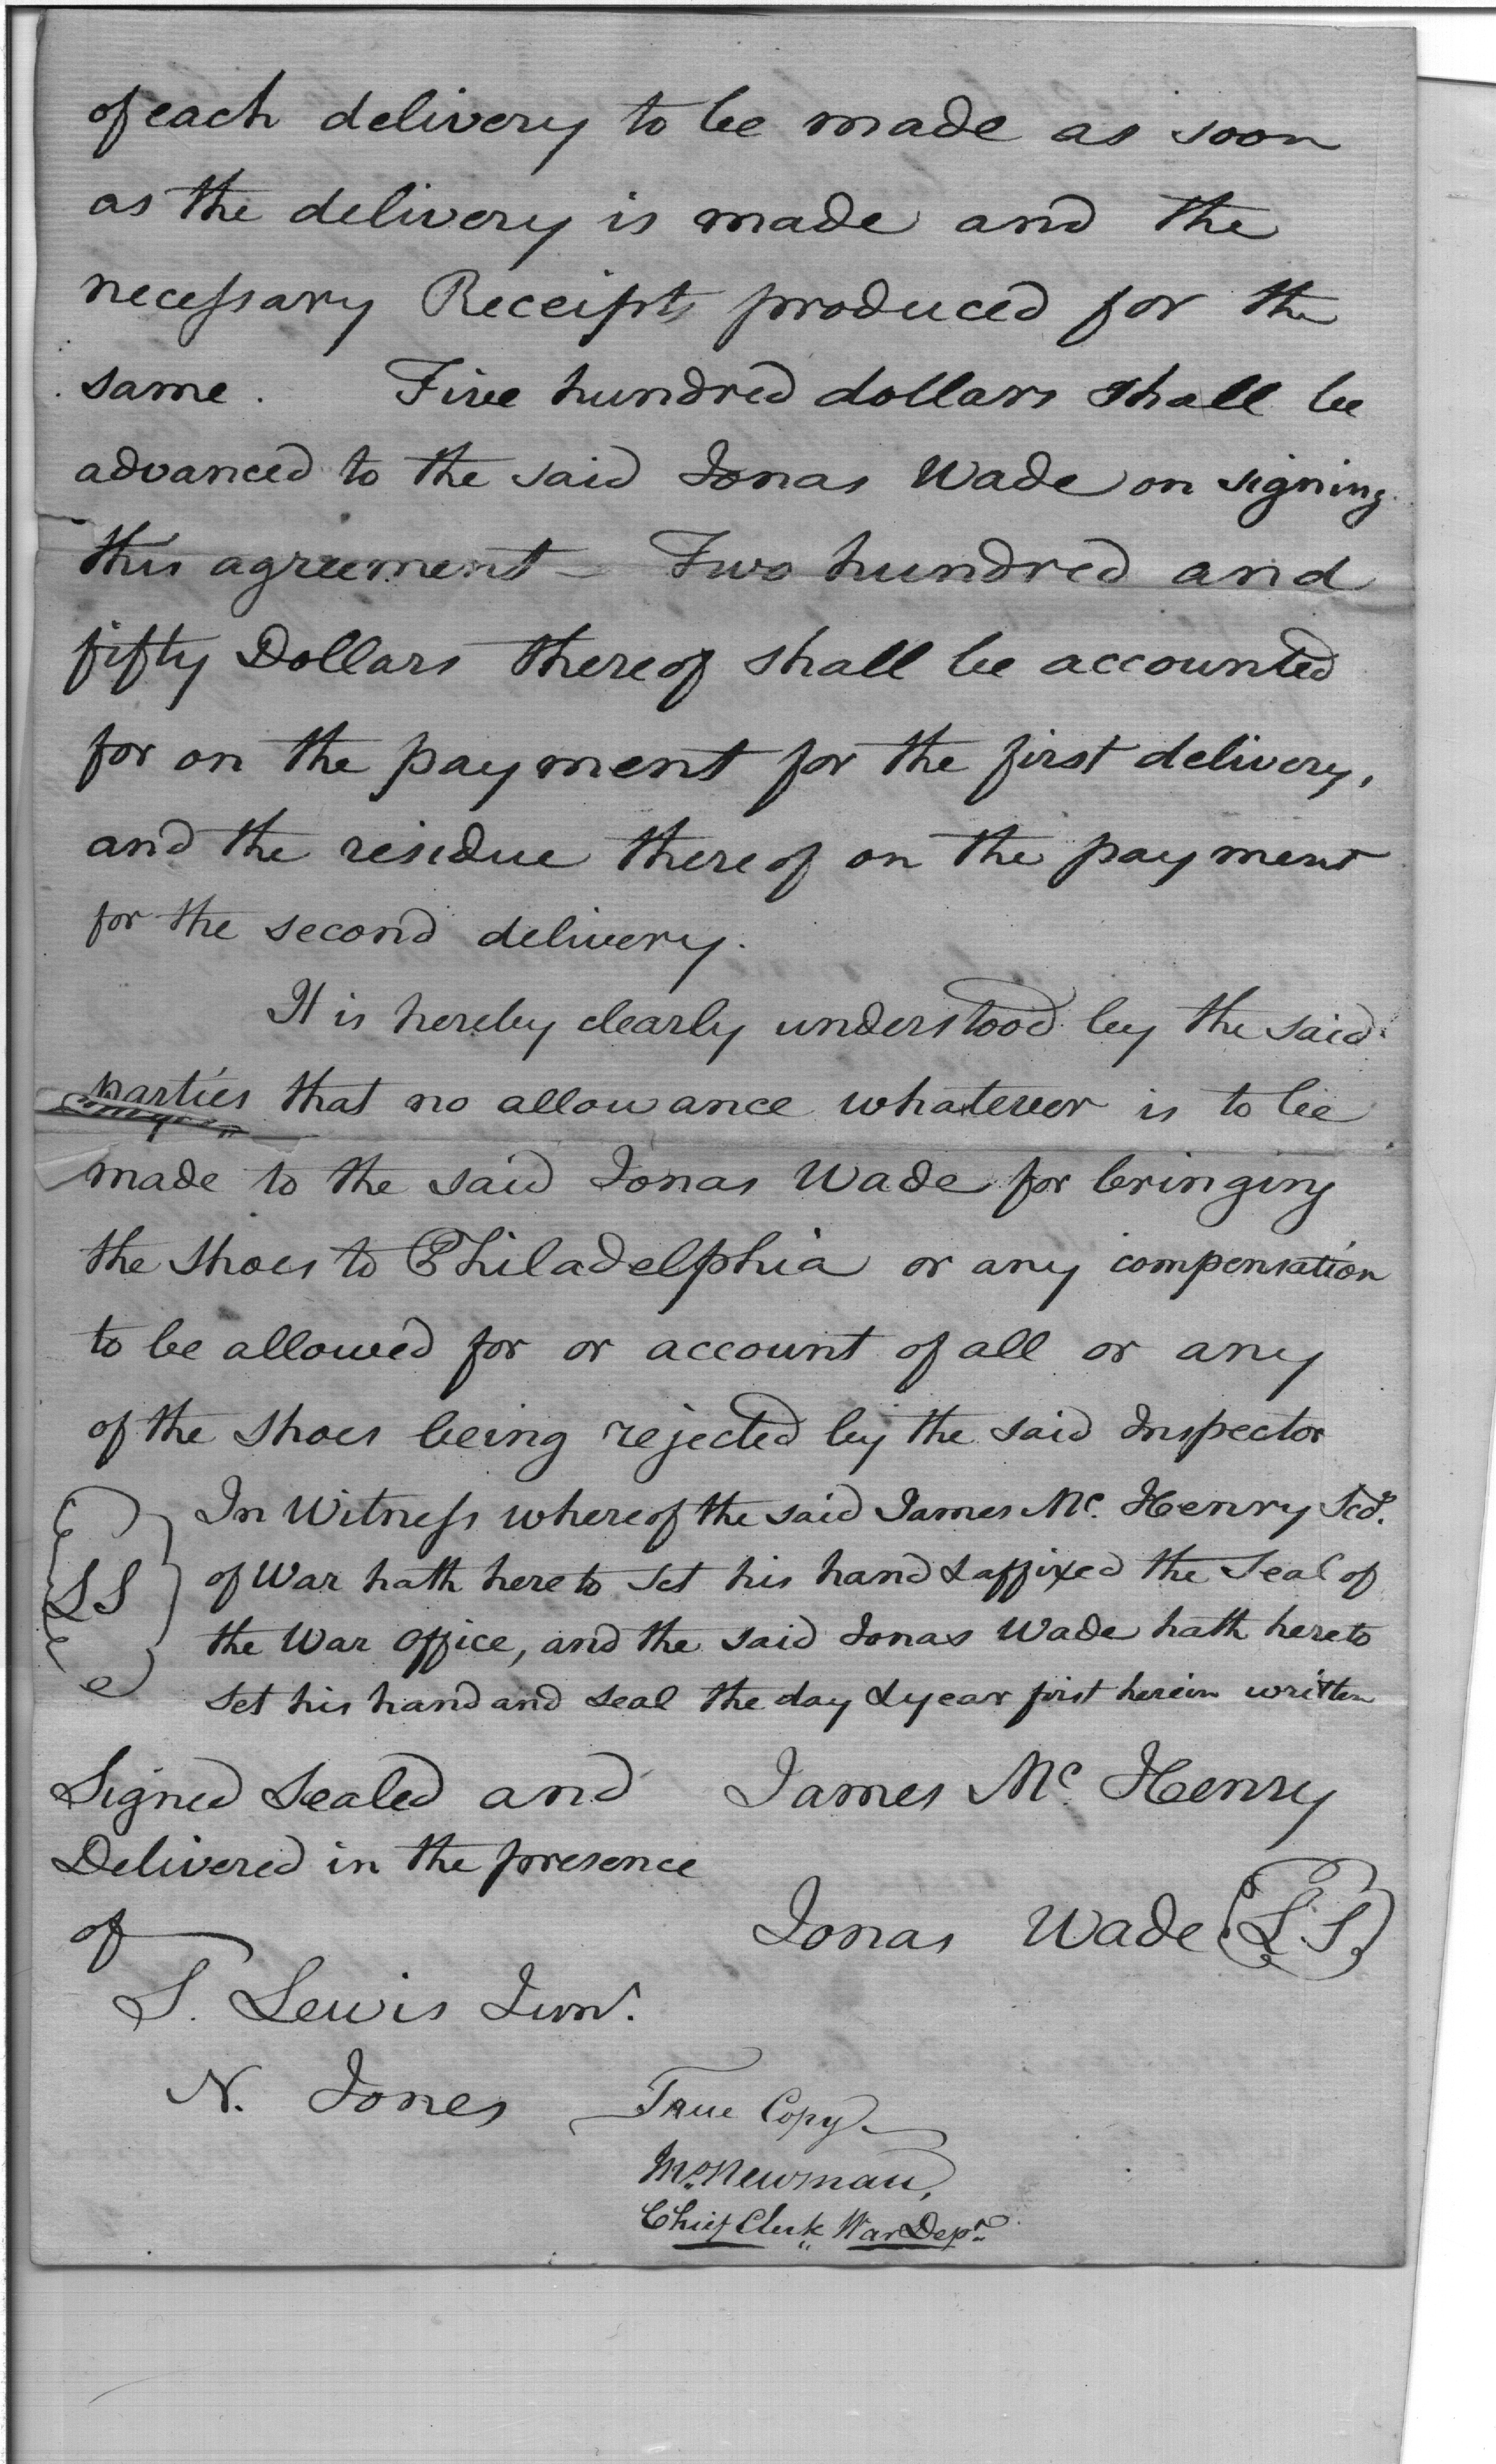 of each delivery to be made as soon
as the delivery is made and the
necessary Receipts produced for the
same. Five hundred dollars shall be
advanced to the said Jonas Wade on signing
this agreement – Two hundred and
fifty Dollars thereof shall be accounted
for on the payment for the first delivery,
and the residue thereof on the payment
for the second delivery.
It is hereby clearly understood by the said
parties that no allowance whatever is to be
made to the said Jonas Wade for bringing
the shoes to Philadelphia or any compensation
to be allowed for or account of all or any
of the shoes being rejected by the said Inspector
In Witness whereof the said James Mc. Henry Secy.
of War hath hereto set his hand & affixed the Seal of
LS
the War office, and the said Jonas Wade hath hereto
set his hand and seal the day & year first herein written
Signed Sealed and James Mc. Henry
Delivered in the presence
of Jonas Wade L.S.
S. Lewis Junr.
N. Jones
True Copy
Newman,
Chief Clerk War Dept.